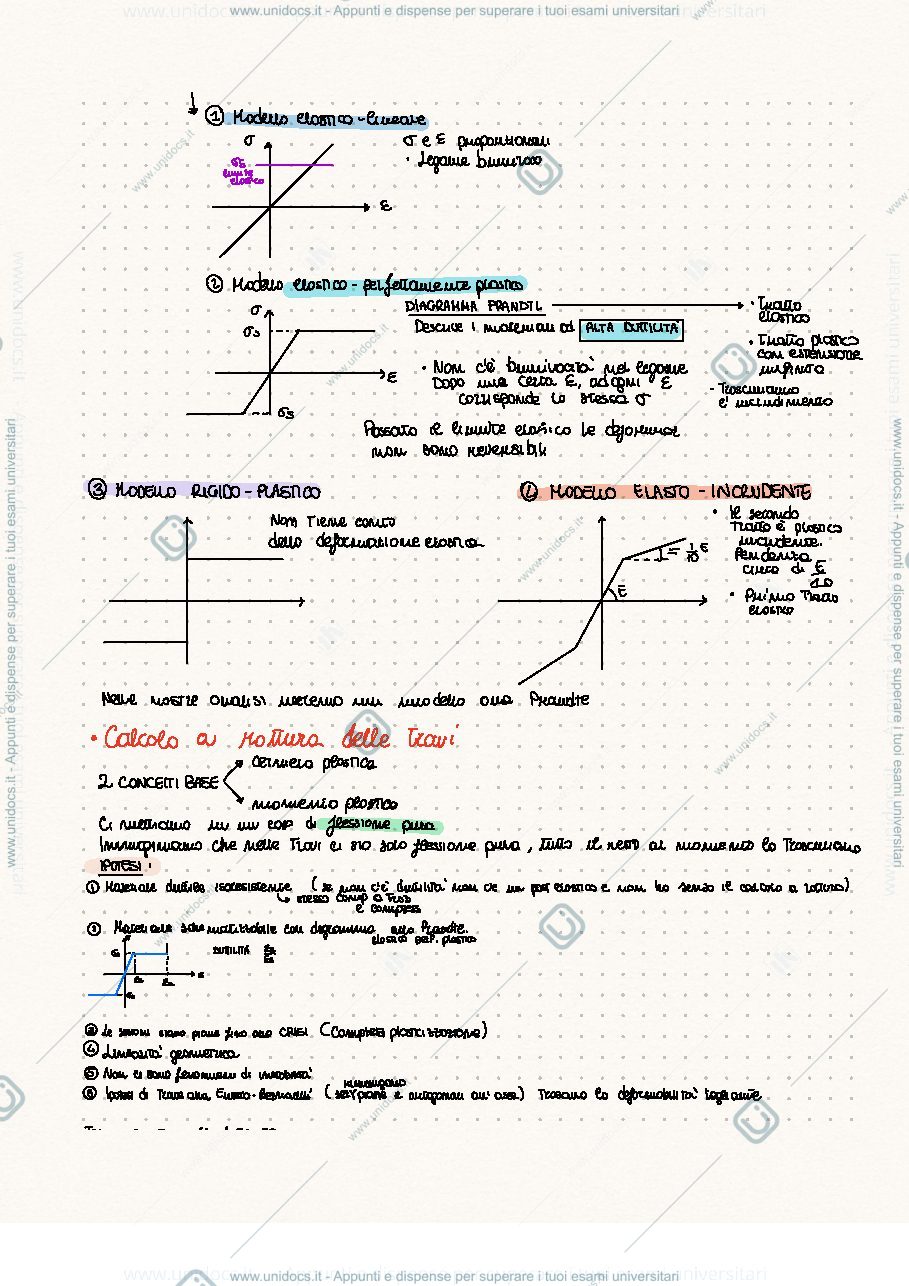 www.unidocs.it - Appunti e dispense per superare i tuoi esami universitari
① Modello elastico-lineare
σ
σ e ε proporzionali
• Legame biunivoco
σs
limite
elastico
ε
② Modello elastico - perfettamente plastico
σ
DIAGRAMMA PRANDTL
• Tratto
elastico
σs
Descrive i materiali ad ALTA DUTTILITÀ
• Tratto plastico
con estensione
infinita
• Non c'è biunivocità nel legame
ε
Dopo una certa ε, ad ogni ε
corrisponde la stessa σ
- Trascuriamo
l'incrudimento
σs
Passato il limite elastico le deformaz
non sono reversibili
③ MODELLO RIGIDO-PLASTICO
④ MODELLO ELASTO - INCRUDENTE
Non tiene conto
della deformazione elastica
• Il secondo
tratto è plastico
incrudente.
Pendenza
circa di E/10
1/10 E
E
• Primo tratto
elastico
Nelle nostre analisi useremo un modello alla Prandtl
• Calcolo a rottura delle travi
2 CONCETTI BASE
cerniera plastica
momento plastico
Ci mettiamo in un caso di flessione pura
Immaginiamo che nelle travi ci sia solo flessione pura, tutto il resto al momento lo trascuriamo
IPOTESI:
① Materiale duttile isoresistente (se non c'è duttilità non c'è un post elastico e non ha senso il calcolo a rottura)
stesso comp a traz
e compress
② Materiale schematizzabile con diagramma alla Prandtl.
elastico perf. plastico
DUTTILITÀ
③ Le sezioni siano piane fino alla CRISI (Completa plasticizzazione)
④ Linearità geometrica
⑤ Non ci sono fenomeni di instabilità
⑥ Ipotesi di Trave alla Eulero-Bernoulli (sez piane e ortogonali all'asse) Trascuro la deformabilità tagliante
rimangono
www.unidocs.it - Appunti e dispense per superare i tuoi esami universitari